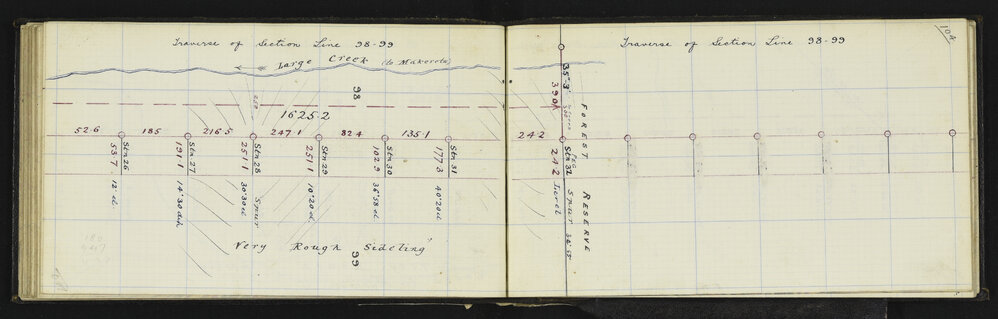 Traverse of Section Line 98-99
Large Creek (to Makerola)
98
1625.2
52.6 185 216.5 247.1 82.4 135.1
Stn 26
53.7 12° d
Stn 27
191.1 14°30 d
Stn 28 Spur
251.1 30°30 d
Stn 29
251.1 10°20 d
Stn 30
102.9 36°58 d
Stn 31
177.3 40°20 d
Very Rough Sideling
99
Traverse of Section Line 98-99
104
35°3'
390
24.2
Stn 32 Spur
24.2 Level
FOREST RESERVE